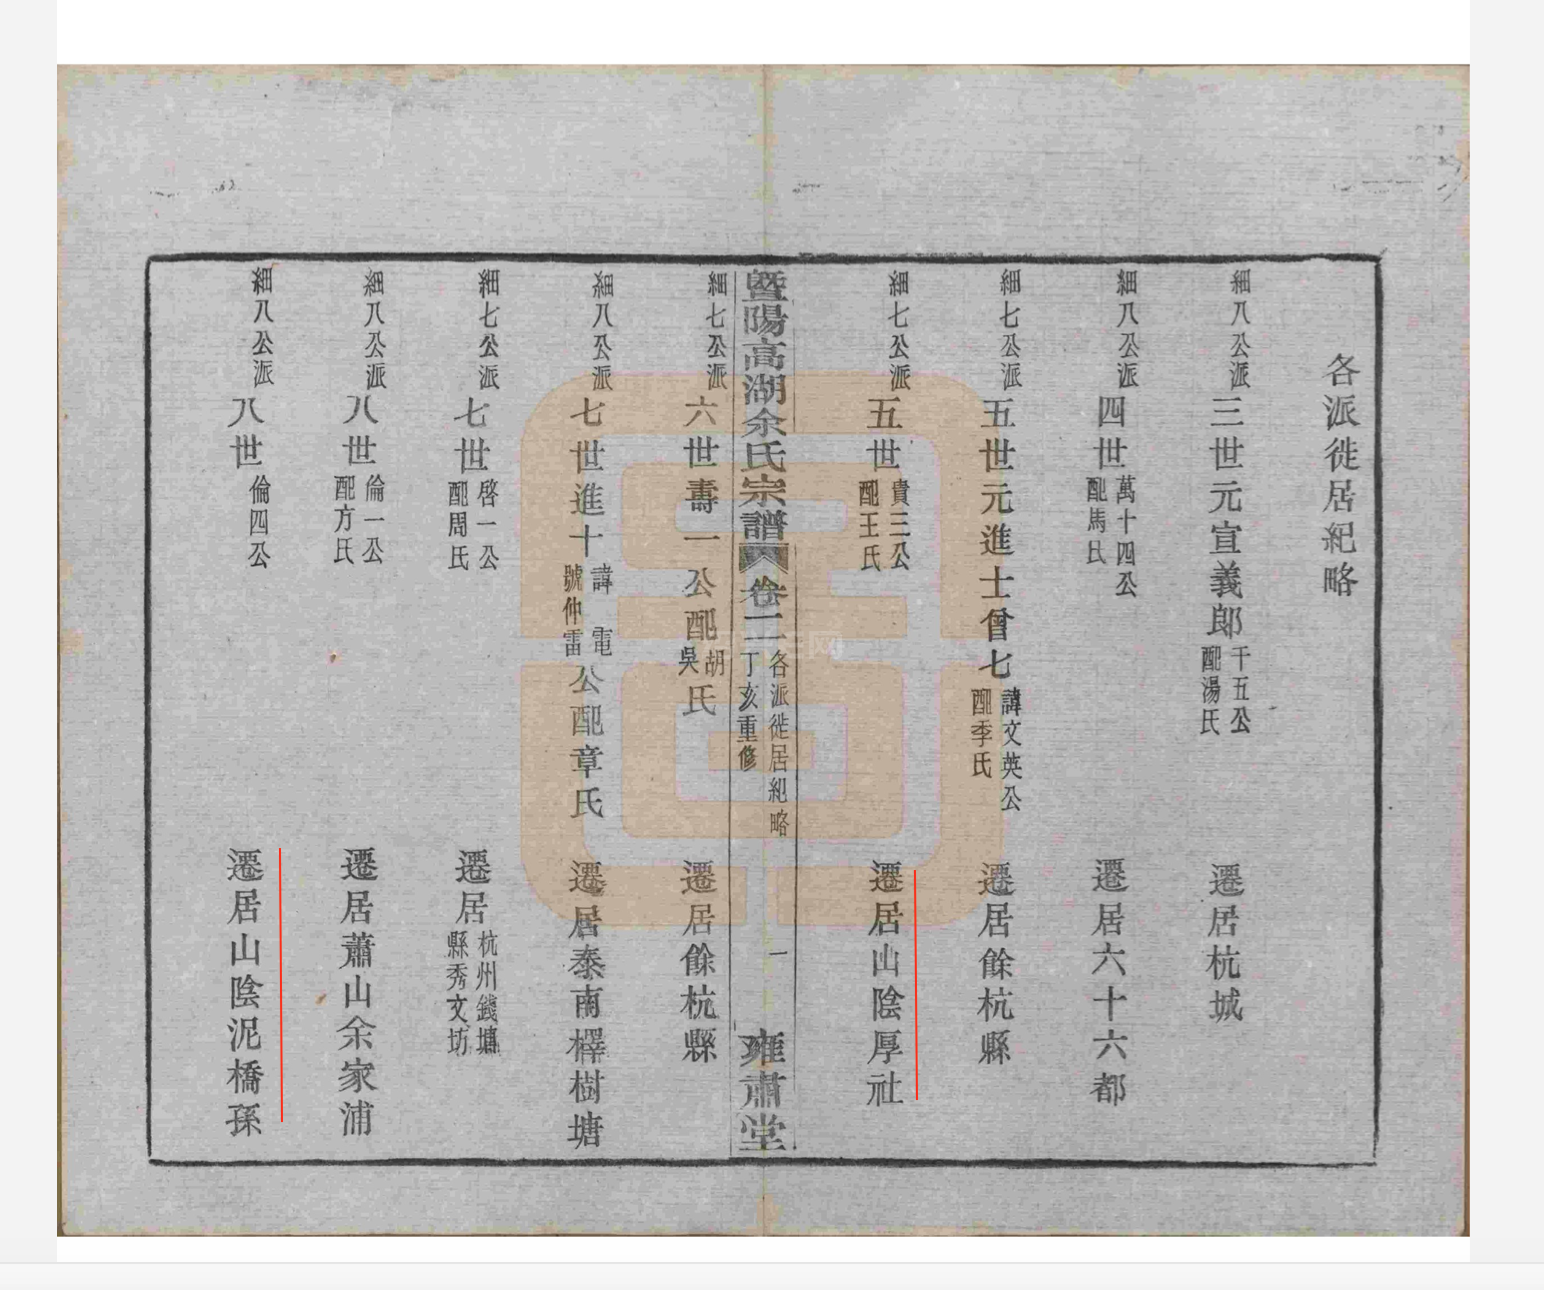 各派徙居紀略
細八公派 三世元宣義郎 千五公 配湯氏 遷居杭城
細八公派 四世 萬十四公 配馬氏 遷居六十六都
細七公派 五世元進士曾七 諱文英公 配季氏 遷居餘杭縣
細七公派 五世 貴三公 配王氏 遷居山陰厚社
暨陽高湖余氏宗譜 卷二 各派徙居紀略 丁亥重修 一 雍肅堂
細七公派 六世壽一公配 胡 吳 氏 遷居餘杭縣
細八公派 七世進十 諱電 號仲雷 公配章氏 遷居泰南檡樹塘
細七公派 七世 啓一公 配周氏 遷居 杭州錢塘 縣秀文坊
細八公派 八世 倫一公 配方氏 遷居蕭山余家浦
細八公派 八世 倫四公 遷居山陰泥橋孫